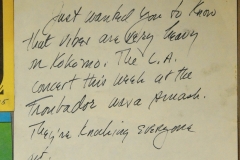 Just wanted you to know
that vibes are very heavy
in Kokomo. The L.A.
concert this week at the
Troubador was a smash.
They're knocking everyone
out.